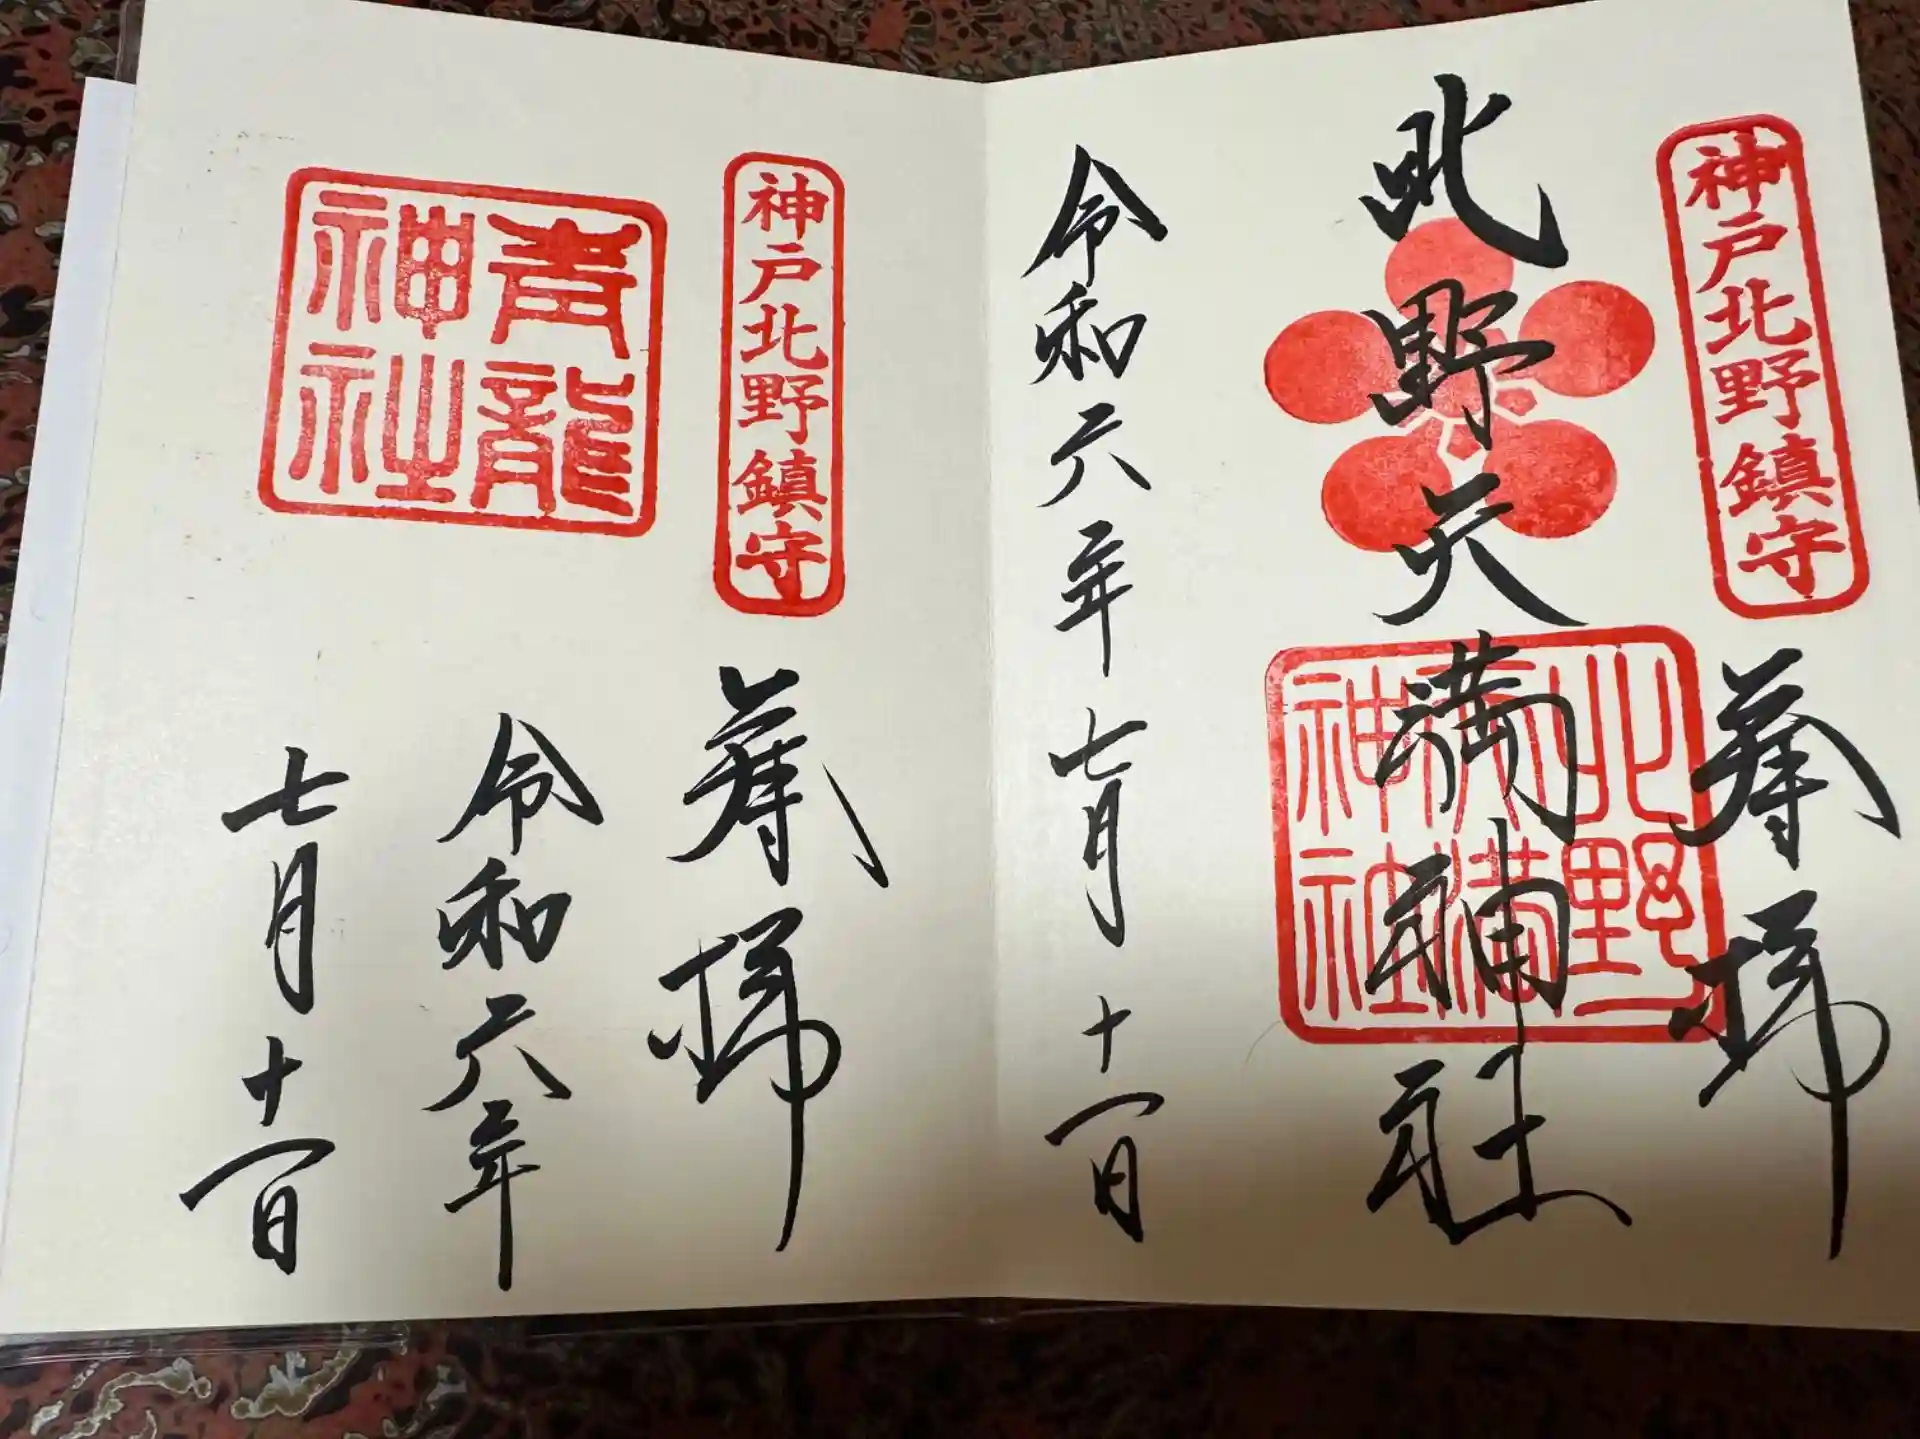 神戸北野鎮守
奉拝
北野天満神社
北野天満神社
令和六年七月十一日
神戸北野鎮守
奉拝
青龍神社
令和六年
七月十一日